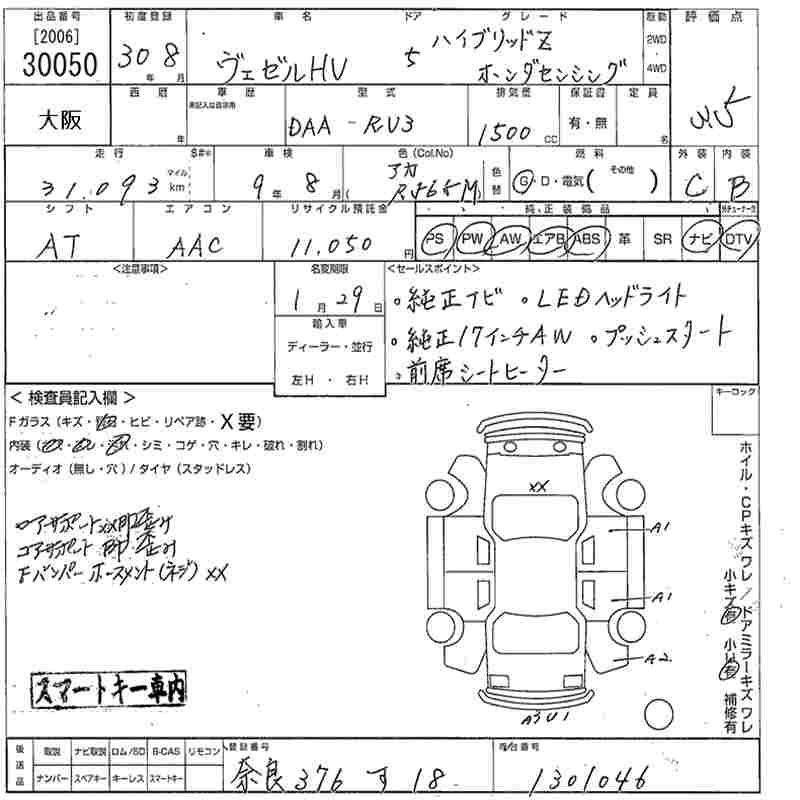 出品番号 初度登録 車名 ドア グレード 駆動 評価点
[2006]
30050
30年 8月
ヴェゼルHV
5
ハイブリッドZ
ホンダセンシング
2WD
・
4WD
3.5
大阪
西暦 車歴 型式 排気量 保証書 定員
未記入は自家用
年 DAA-RU3 1500cc 有・無 名
走行 $#* 車検 色(Col.No) 燃料 外装 内装
31,093 マイル km 9年 8月( アカ 色替 Ⓖ・D・電気( その他 ) C B
R565M)
シフト エアコン リサイクル預託金 純正装備品
AT AAC 11,050円 PS PW AW エアB ABS 革 SR ナビ DTV
<注意事項> 名変期限 <セールスポイント>
1月29日
。純正ナビ 。LEDヘッドライト
輸入車
。純正17インチAW 。プッシュスタート
ディーラー・並行
。前席シートヒーター
左H ・ 右H
< 検査員記入欄 >
キーロック
Fガラス(キズ・ ・ヒビ・リペア跡・X要)
内装( ・ ・ ・シミ・コゲ・穴・キレ・破れ・割れ)
オーディオ(無し・穴)/タイヤ(スタッドレス)
XX
A1
コアサポート 即 歪み
Fバンパー ホースメント(ネジ) XX
A1
A2
ホイル・CPキズ ワレ/ドアミラーキズ ワレ
小キズ有 小凹有 補修有
スマートキー車内
後送品 取説 ナビ取説 ロム/SD B-CAS リモコン
ナンバー スペアキー キーレス スマートキー
登録番号 奈良 376 す 18
車台番号 1301046